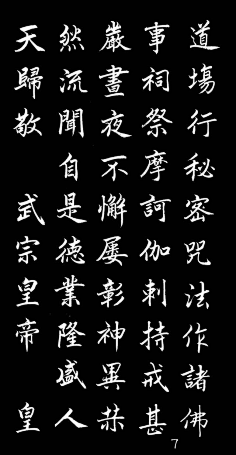 道塲行秘密咒法作諸佛
事祠祭摩訶伽剌持戒甚
嚴晝夜不懈屢彰神異赫
然流聞自是德業隆盛人
天歸敬 武宗皇帝 皇
7